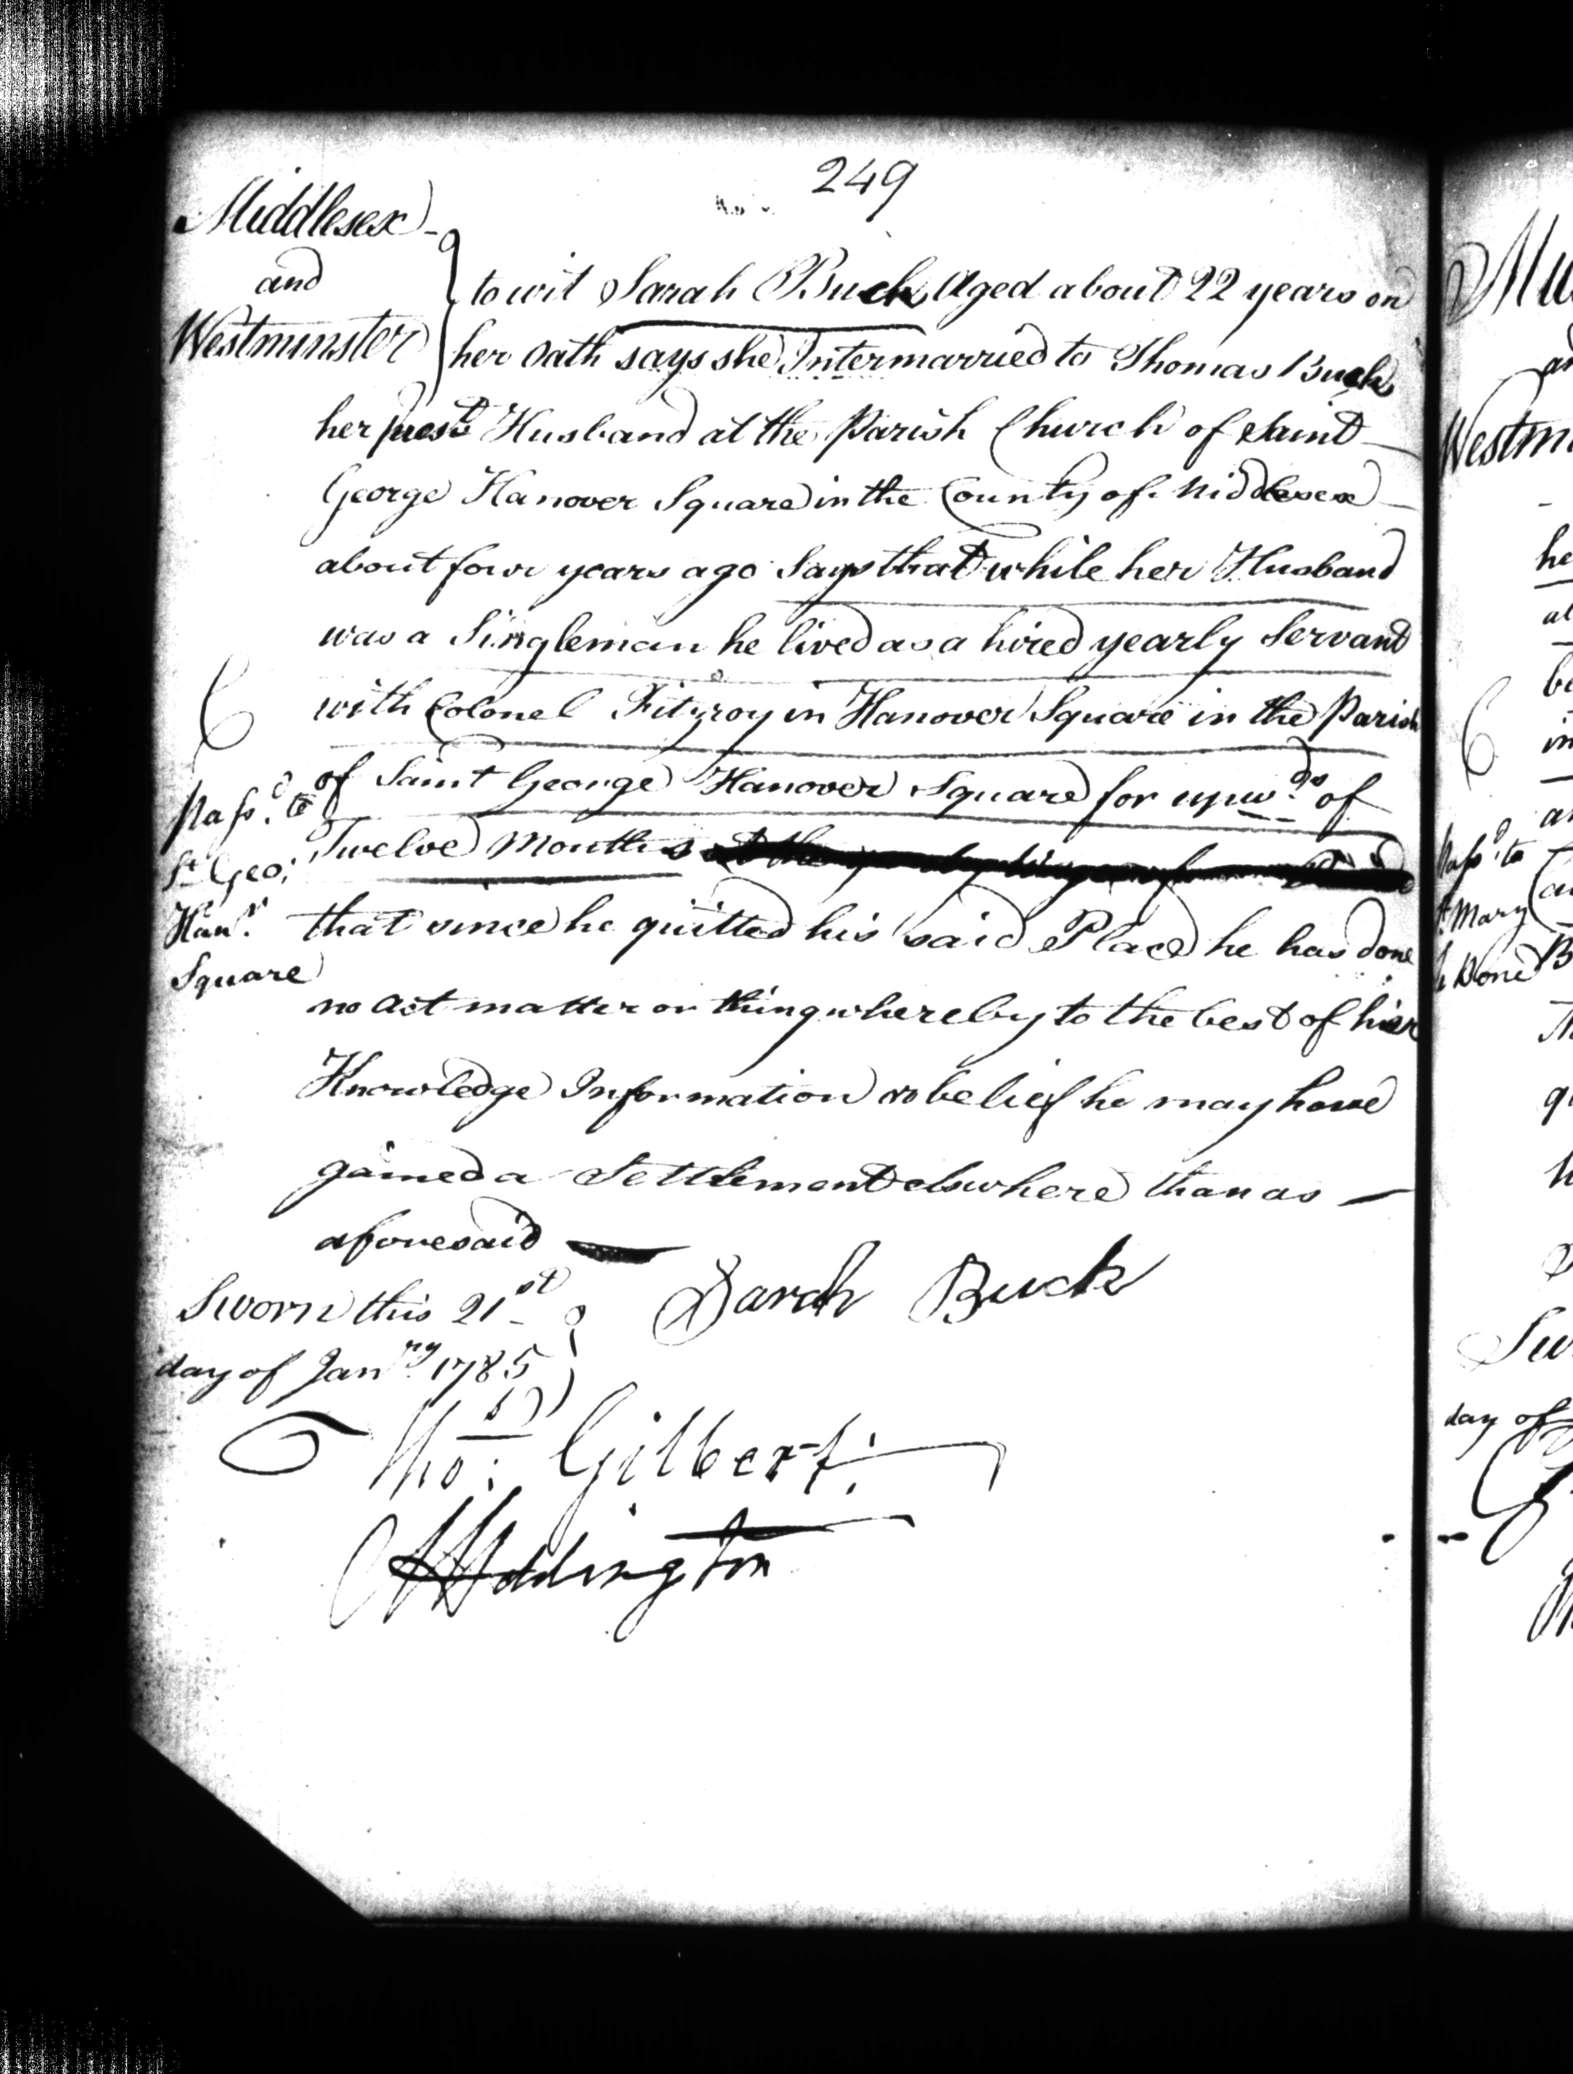 249
Middlesex
and
Westminster
to wit Sarah Buck Aged about 22 years on
her Oath says she Intermarried to Thomas Buck
her prest Husband at the Parish Church of Saint
George Hanover Square in the County of Middlesex
about four years ago Says that while her Husband
was a Singleman he lived as a hired yearly Servant
with Colonel Fitzroy in Hanover Square in the Parish
of Saint George Hanover Square for upwds of
Twelve Months
that since he quitted his said Place he has done
no Act matter or thing whereby to the best of her
Knowledge Information or belief he may have
gained a Settlement elswhere than as
aforesaid
Passd to
St Geo:
Hanr
Square
Sworn this 21st
day of Janry 1785
Sarah Buck
Thos: Gilbert
Addington
Westm
Passd to
St Mary
le Bone
day of